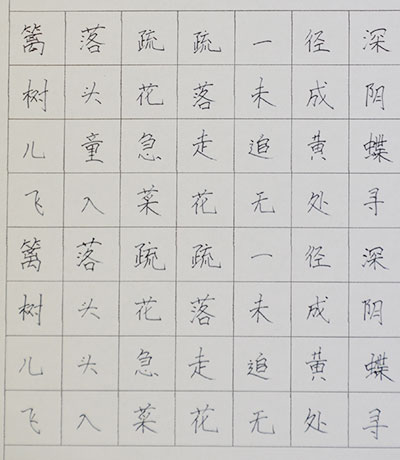 篱落疏疏一径深
树头花落未成阴
儿童急走追黄蝶
飞入菜花无处寻
篱落疏疏一径深
树头花落未成阴
儿头急走追黄蝶
飞入菜花无处寻